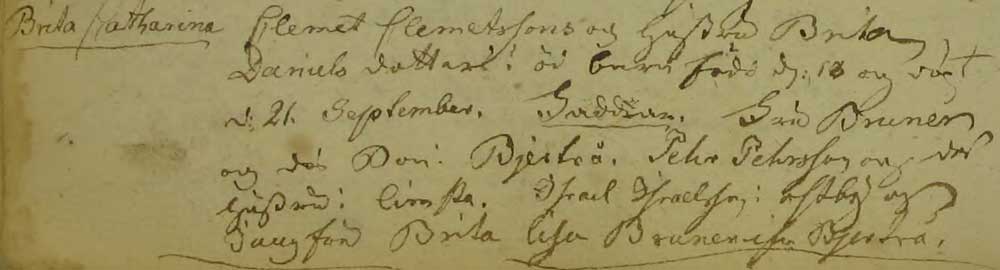 Brita Catharina Clemet Clemetssons og Hustru Brita
Daniels dotters i öi barn född d: 18 og döpt
d: 21. September. Faddrar. Hrn Bruner
og des Don: Bjerträ. Pehr Pehrsson og des
Hustru: Israel Israelsson i og
Jungfru Brita Lisa Bjerträ.